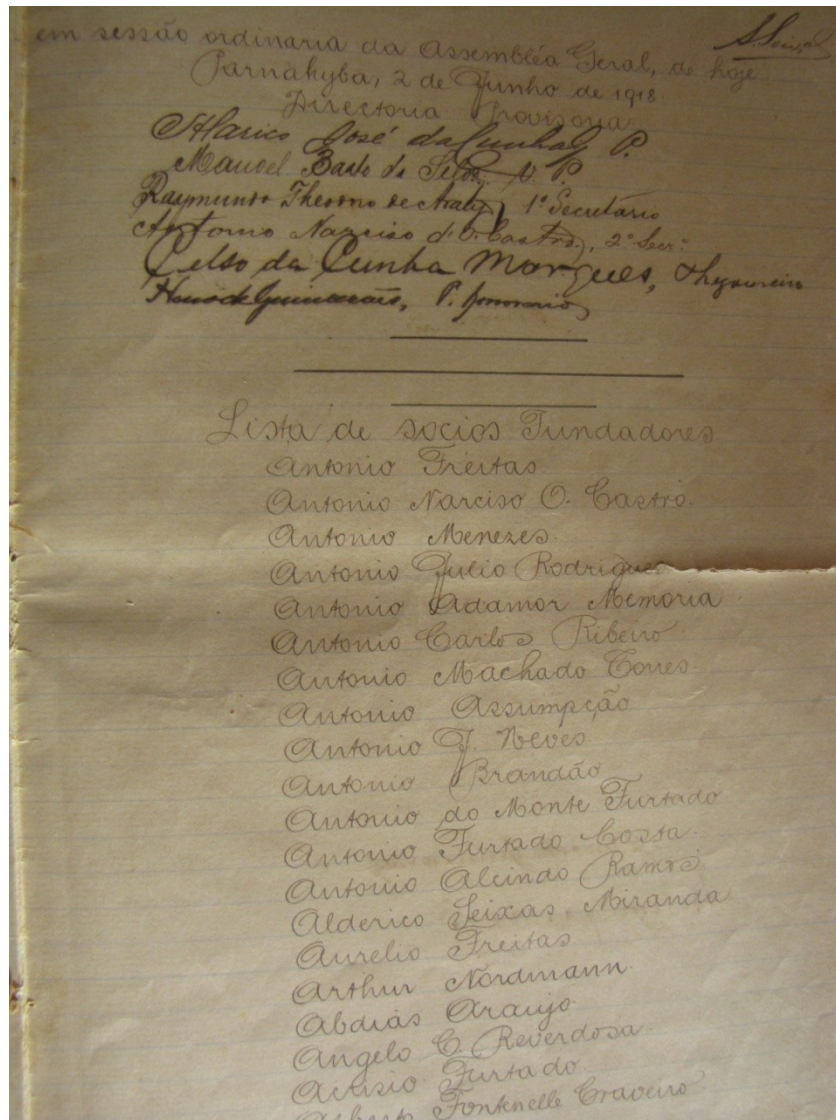 em sessão ordinaria da Assembléa Geral, de hoje
Parnahyba, 2 de Junho de 1918.
Directoria Provisoria
Alarico José da Cunha P.
Manoel Basto da Silva, V. P.
Raymundo Theorno de Araujo, 1º Secretário
Antonio Narciso d'O. Castro, 2º Secr.º
Celso da Cunha Marques, Thezoureiro
Guimarães, P. honorario
Lista de socios Fundadores
Antonio Freitas
Antonio Narciso O. Castro.
Antonio Menezes.
Antonio Julio Rodrigues
Antonio Adamor Memoria
Antonio Carlos Ribeiro
Antonio Machado Torres
Antonio Assumpção
Antonio J. Neves
Antonio Brandão
Antonio do Monte Furtado
Antonio Furtado Costa
Antonio Alcindo Ramos
Alderico Seixas Miranda
Aurelio Freitas
Arthur Nordmann
Abdiás Araujo
Angelo C. Reverdosa
Acrisio Furtado
Fontenelle Craveiro